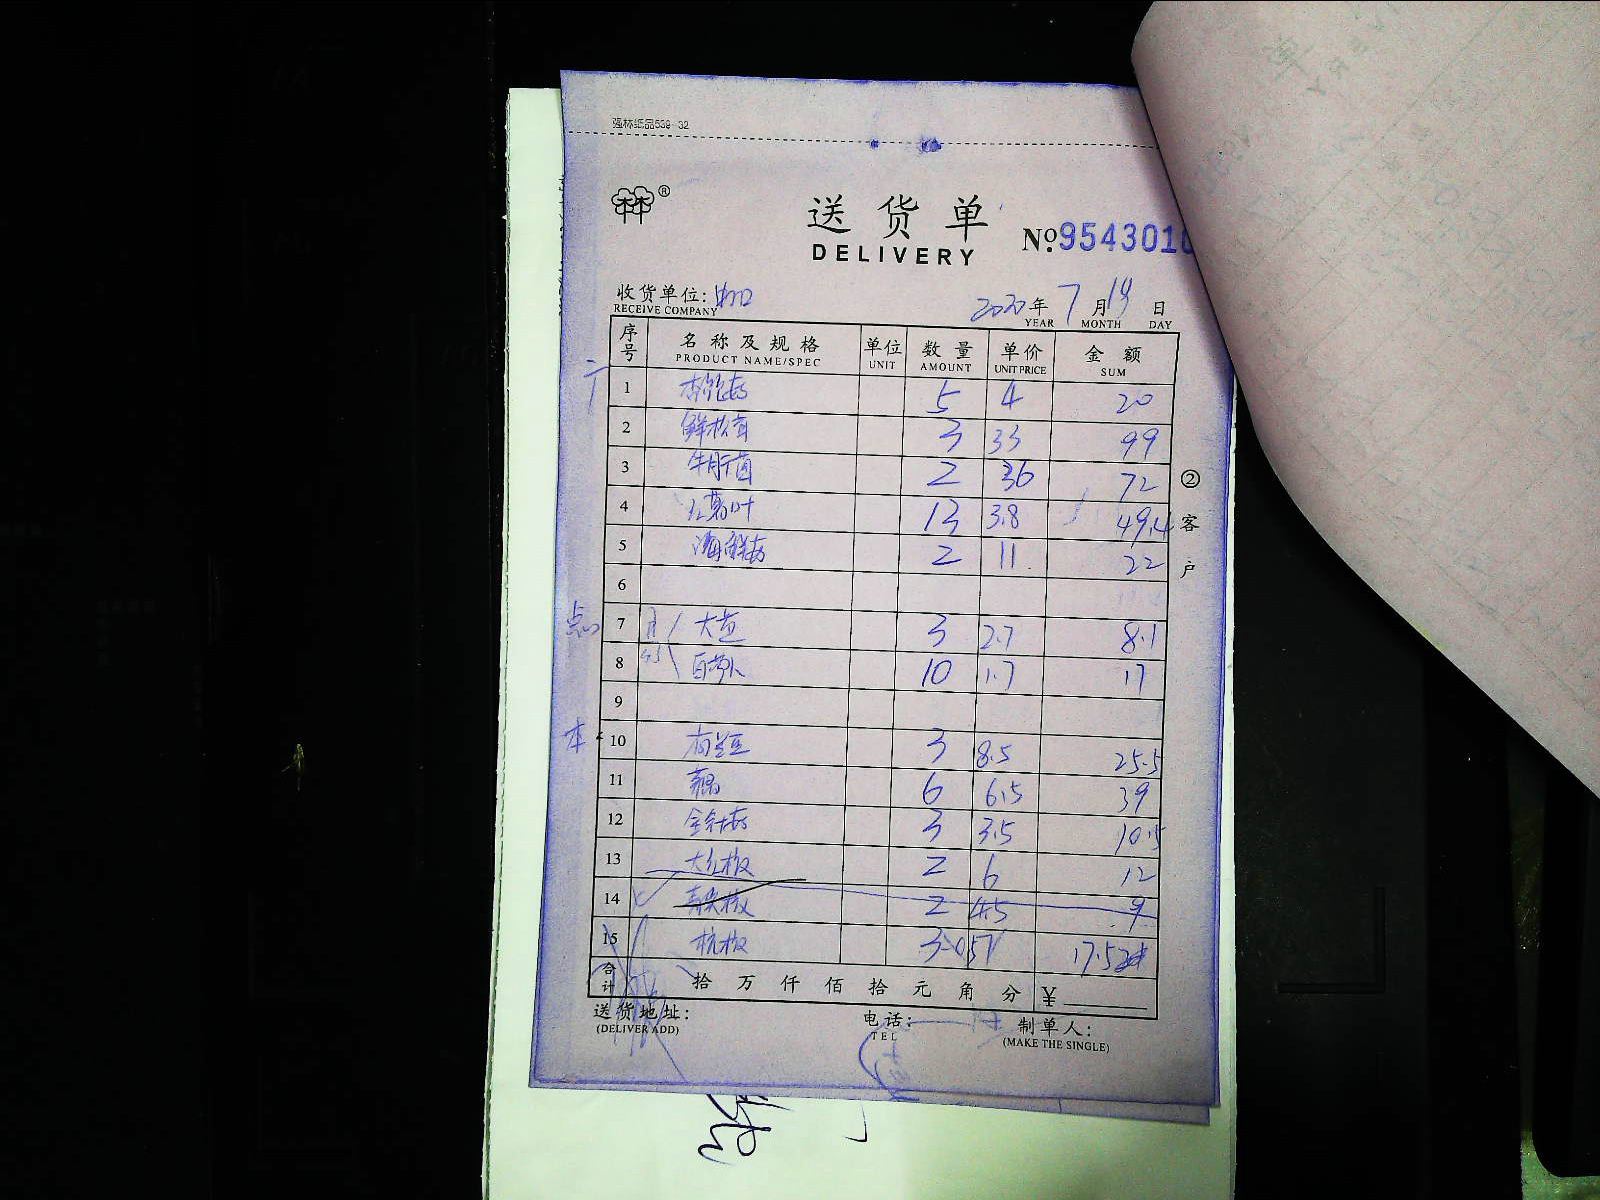 强林纸品539-32
®
送货单
DELIVERY
№ 9543010
收货单位:
RECEIVE COMPANY
2020年 7月 19日
YEAR MONTH DAY
序号 名称及规格 单位 数量 单价 金额
PRODUCT NAME/SPEC UNIT AMOUNT UNIT PRICE SUM
1 杏鲍菇 5 4 20
2 鲜松茸 3 33 99
3 牛肝菌 2 36 72
4 红薯叶 13 3.8 49.4
5 海鲜菇 2 11 22
6
点心 7 大葱 3 2.7 8.1
8 白萝卜 10 1.7 17
9
本 10 荷兰豆 3 8.5 25.5
11 藕 6 6.5 39
12 金针菇 3 3.5 10.5
13 大红椒 2 6 12
14 青尖椒 2 4.5 9
15 杭椒 17.5
合计 拾 万 仟 佰 拾 元 角 分 ¥
送货地址: 电话: 制单人:
(DELIVER ADD) TEL (MAKE THE SINGLE)
②客户